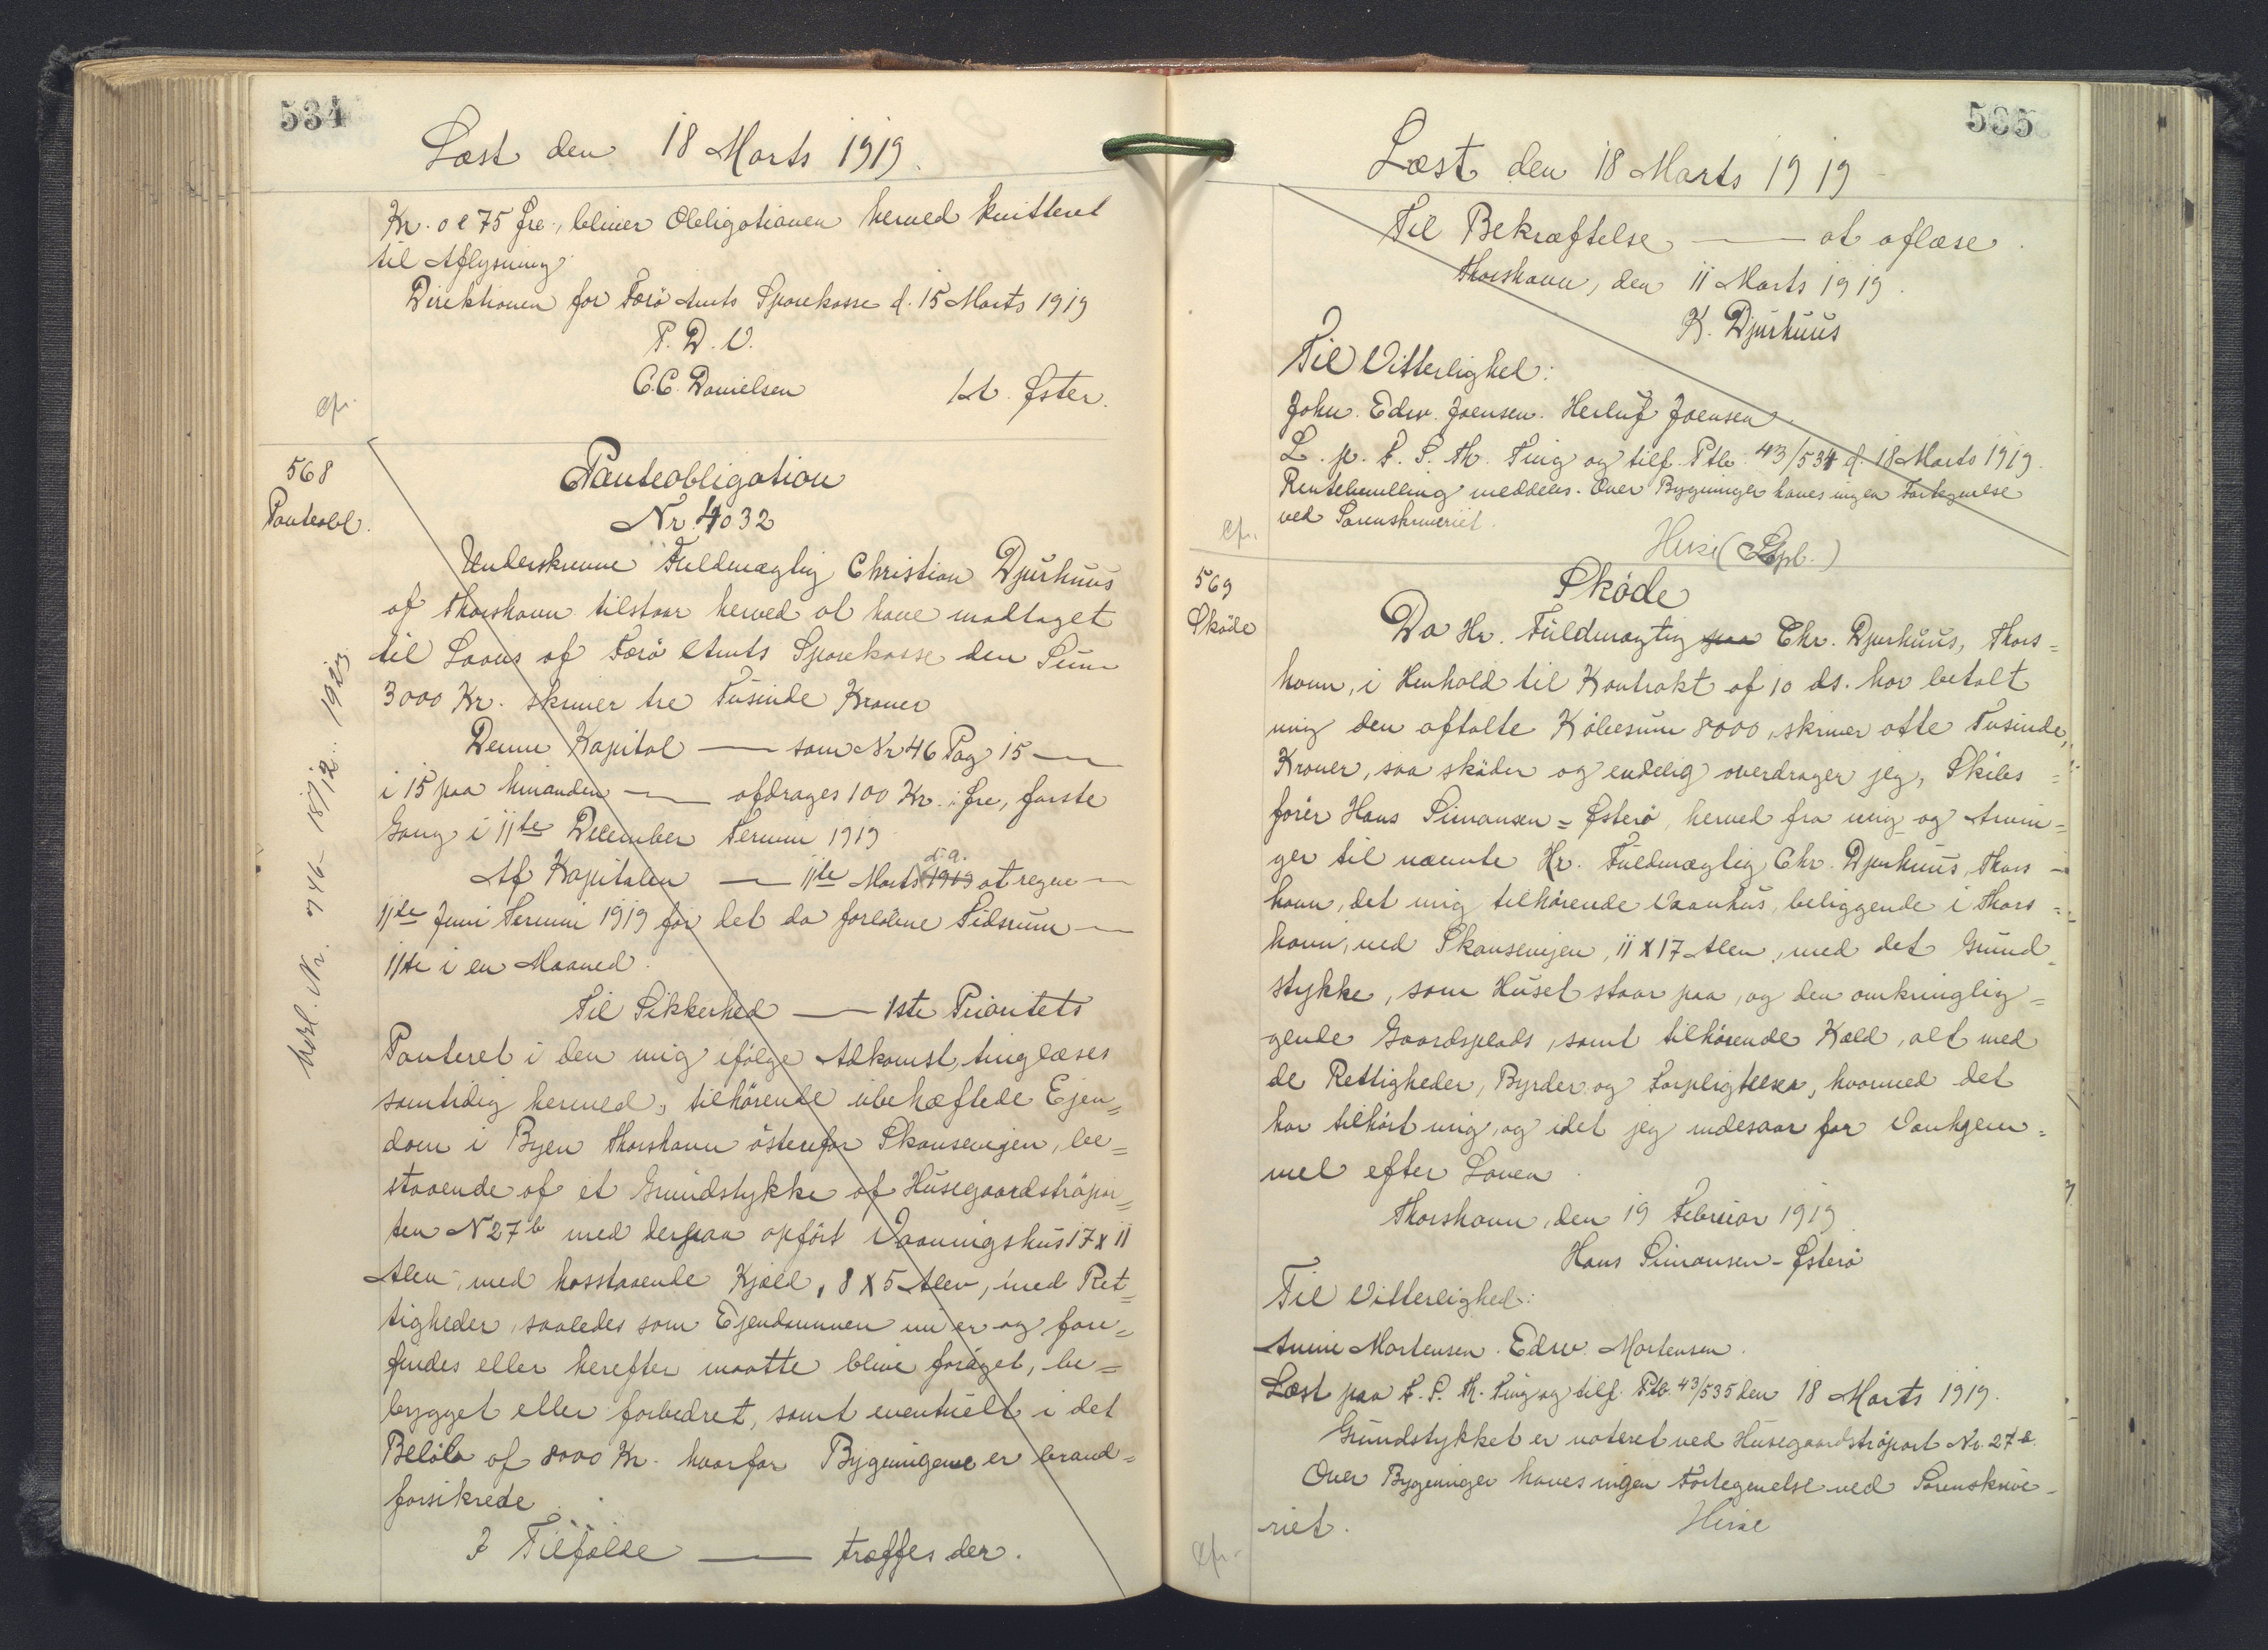 534
Læst den 18 Marts 1919.
Kr. o e 75 Øre, bliver Obligationen herved kvitteret
til Aflysning
Direktionen for Færø Amts Sparekasse d. 15 Marts 1919
P. D. V.
C.C. Danielsen
Øster.
cfr.
568
Panteobl.
Panteobligation
Nr. 4032
Underskrevne Fuldmægtig Christian Djurhuus
af Thorshavn tilstaar herved at have modtaget
til Laans af Færø Amts Sparekasse den Sum
3000 Kr. skriver tre Tusinde Kroner
Denne Kapital — som Nr 46 Pag 15 —
i 15 paa hinanden — afdrages 100 Kr. i Øre, første
Gang i 11te December Termin 1919
d.a.
Af Kapitalen — 11te Marts 1919 at regne —
11te Juni Termin 1919 for det da forløbne Tidsrum —
11te i en Maaned.
Til Sikkerhed — 1ste Prioritets
Panteret i den mig ifølge Adkomst, tinglæses
samtidig hermed, tilhørende ubehæftede Ejen=
dom i Byen Thorshavn østenfor Skansevejen, be=
staaende af et Grundstykke af Husegaardstrøpar=
ten N 27b med derpaa opført Vaaningshus 17 x 11
Alen, med hosstaaende Kjæld, 8 x 5 Alen, med Ret=
tigheder, saaledes som Ejendommen nu er og fore=
findes eller herefter maatte blive forøget, be=
bygget eller forbedret, samt eventuelt i det
Beløb af 8000 Kr. hvorfor Bygningerne er brand=
forsikrede
I Tilfælde — træffes der.
Nr. 746 18/12. 1923.
535
Læst den 18 Marts 1919
Til Bekræftelse — at aflæse.
Thorshavn, den 11 Marts 1919.
K. Djurhuus
Til Vitterlighed:
John. Edw. Joensen. Herluf Joensen.
L. p. S. S. Th. Ting og tilf. Ptb. 43/534 d. 18 Marts 1919.
Rentebevilling meddeles. Over Bygninger haves ingen Fortegnelse
ved Sorenskriveriet.
cfr.
569
Skøde
Skøde
Da Hr. Fuldmægtig paa Chr. Djurhuus, Thors=
havn, i Henhold til Kontrakt af 10 ds. har betalt
mig den aftalte Købesum 8000, skriver otte Tusinde,
Kroner, saa skøder og endelig overdrager jeg, Skibs=
fører Hans Simonsen = Østerø, herved fra mig og Arvin=
ger til nævnte Hr. Fuldmægtig Chr. Djurhuus, Thors =
havn, det mig tilhørende Vaanhus, beliggende i Thors =
havn, ved Skansevejen, 11 x 17 Alen, med det Grund=
stykke, som Huset staar paa, og den omkringlig=
gende Gaardsplads, samt tilhørende Kæld, alt med
de Rettigheder, Byrder og Forpligtelser, hvormed det
har tilhørt mig, og idet jeg indestaar for Vanhjem=
mel efter Loven.
Thorshavn, den 19 Februar 1919.
Hans Simonsen - Østerø
Til Vitterlighed:
Annie Mortensen. Edw. Mortensen.
Læst paa S. S. Th. Ting og tilf. Ptb. 43/535 den 18 Marts 1919.
Grundstykket er noteret ved Husegaardstrøpart Nr. 27b.
Over Bygninger haves ingen Fortegnelse ved Sorenskrive-
riet.
cfr.